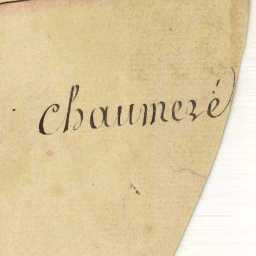 chaumeré